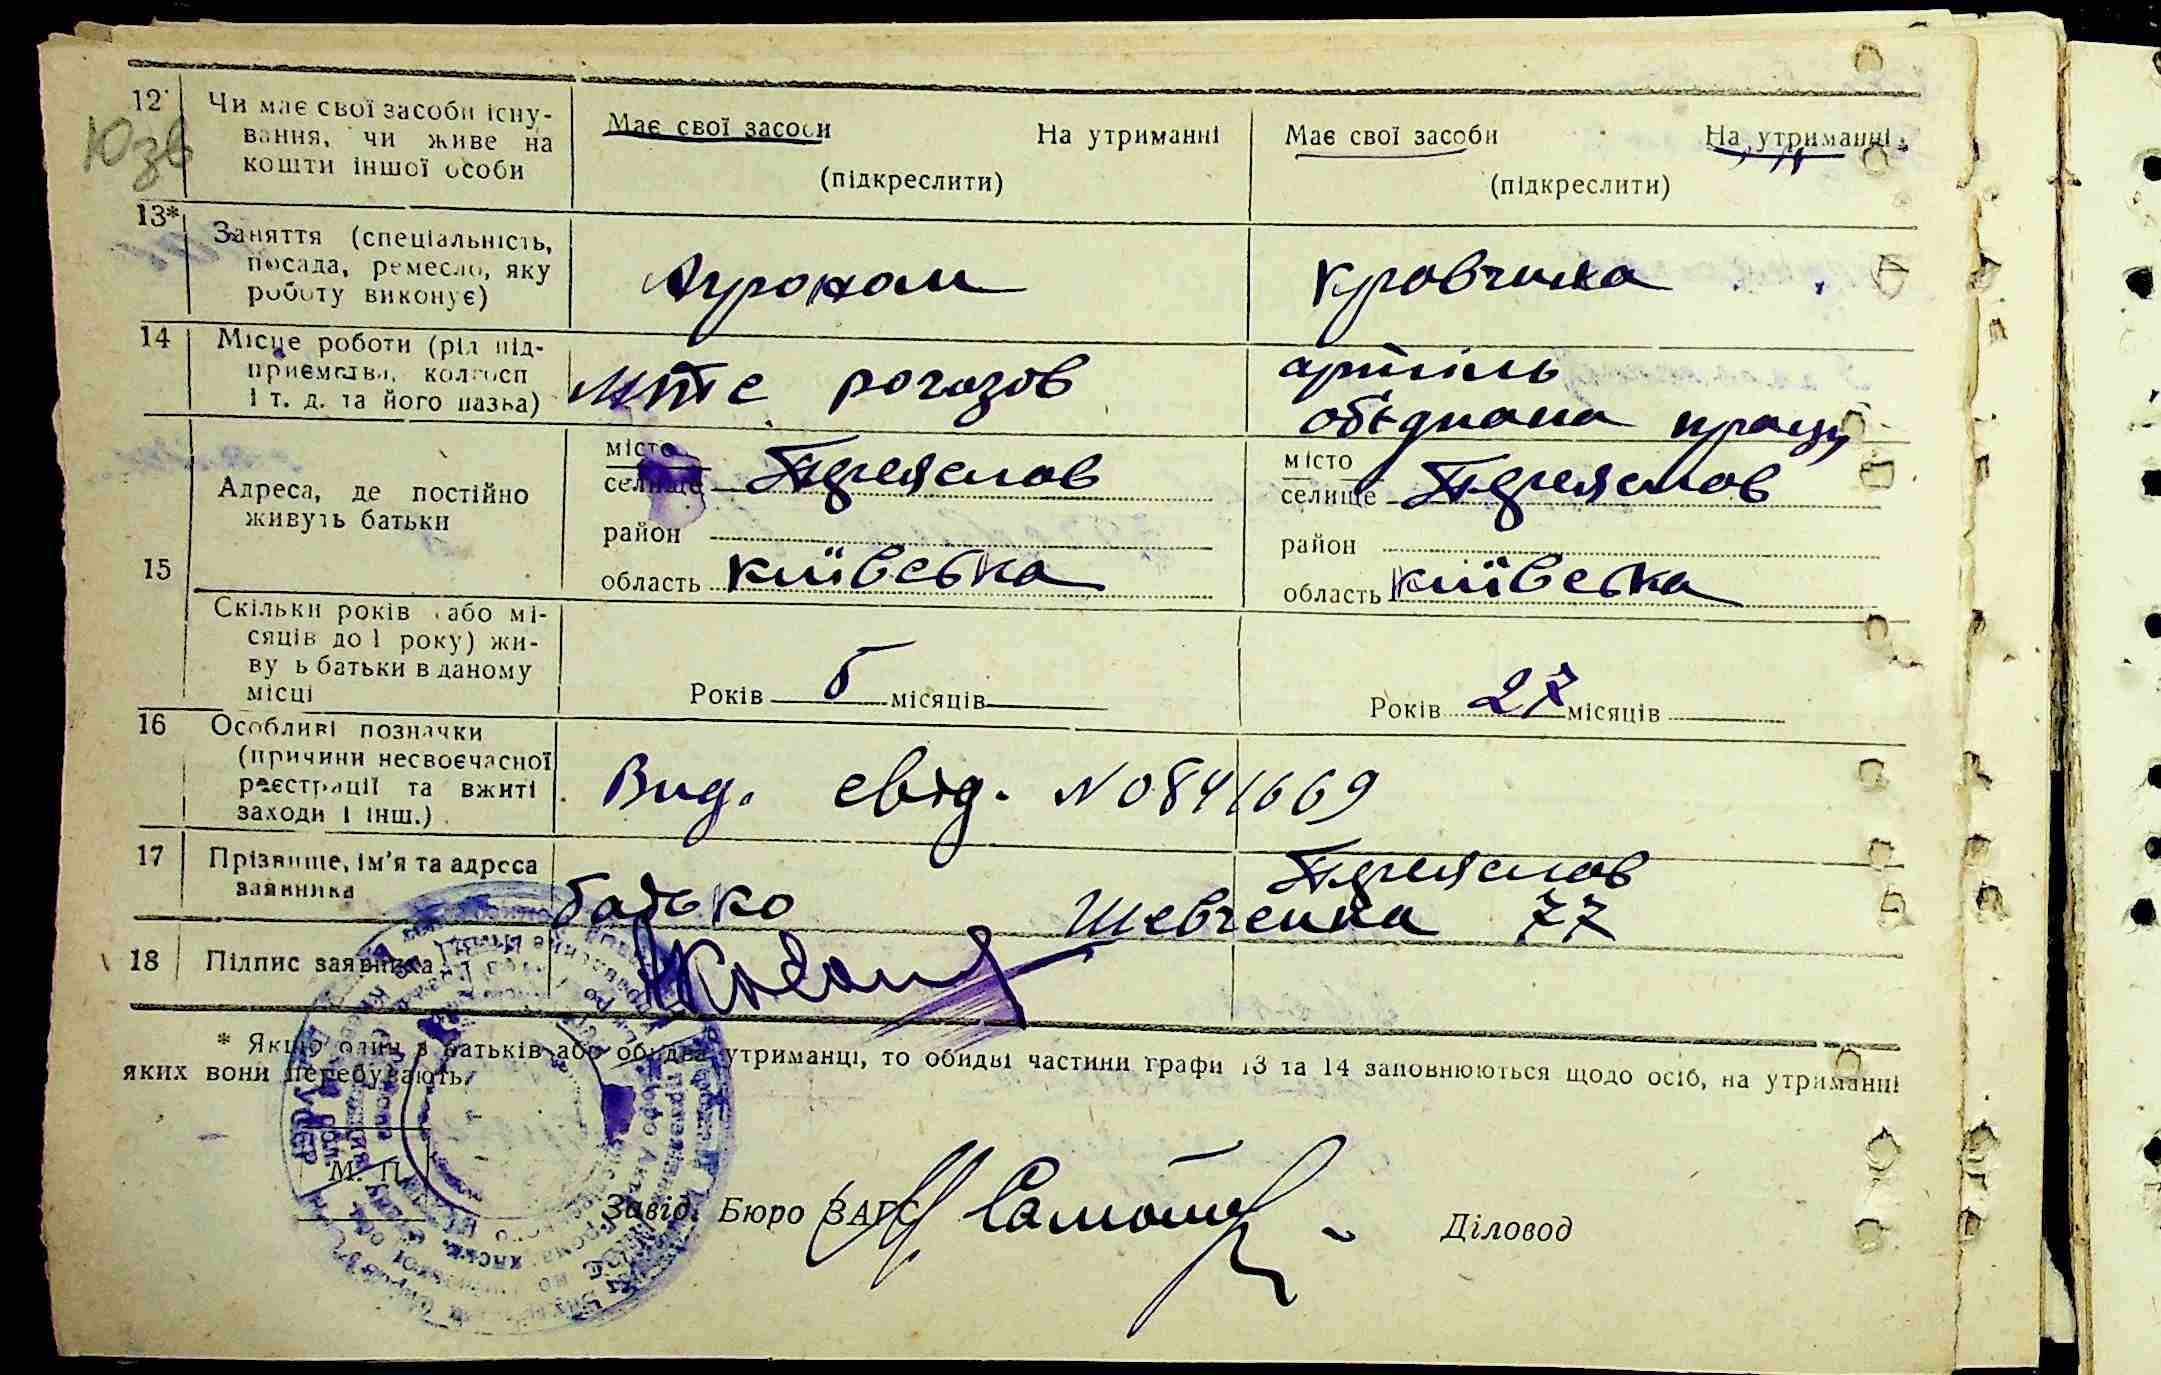 12
Юзв
Чи має свої засоби існу-
вання, чи живе на
кошти іншої особи
Має свої засоби На утриманні
(підкреслити)
Має свої засоби На утриманні
(підкреслити)
13*
Заняття (спеціальність,
посада, ремесло, яку
роботу виконує)
Агроном
Кровчиха
14
Місце роботи (рід під-
приємства, колгосп
і т. д. та його назва)
МТС рогозов
артіль
об'єднана праця
15
Адреса, де постійно
живуть батьки
місто
селище Переяслов
район
область київська
місто
селище Переяслов
район
область київська
Скільки років або мі-
сяців до 1 року) жи-
ву ь батьки в даному
місці
Років 5 місяців
Років 27 місяців
16
Особливі позначки
(причини несвоєчасної
реєстрації та вжиті
заходи і інш.)
Вид. свід. N 0841669
17
Прізвище, ім'я та адреса
заявника
батько
Переяслов
Шевченка 77
18
Підпис заявника
* Якщо один з батьків або обидва утриманці, то обидві частини графи 13 та 14 заповнюються щодо осіб, на утриманні
яких вони перебувають.
М. П.
Завід. Бюро ЗАГС
Діловод